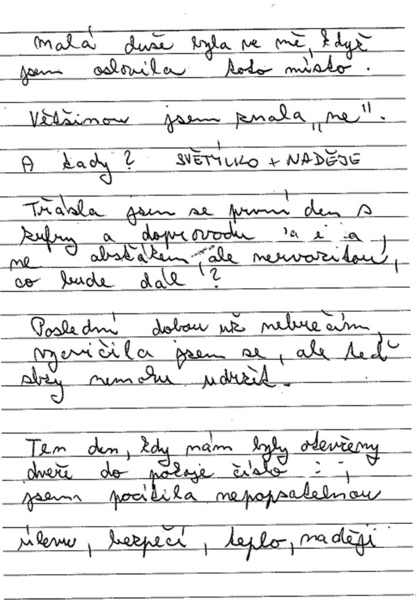 Malá duše byla ve mě, když
jsem oslovila toto místo.
Většinou jsem znala „ne".
A tady? SVĚTÝLKO + NADĚJE
Třásla jsem se první den s
kufry a doprovodu a i a,
ne absťákem, ale nervozitou,
co bude dál?
Poslední dobou už nebrečím,
vycvičila jsem se, ale teď
slzy nemohu udržet.
Ten den, kdy nám byly otevřeny
dveře do pokoje číslo
jsem pocítila nepopsatelnou
úlevu, bezpečí, teplo, naději